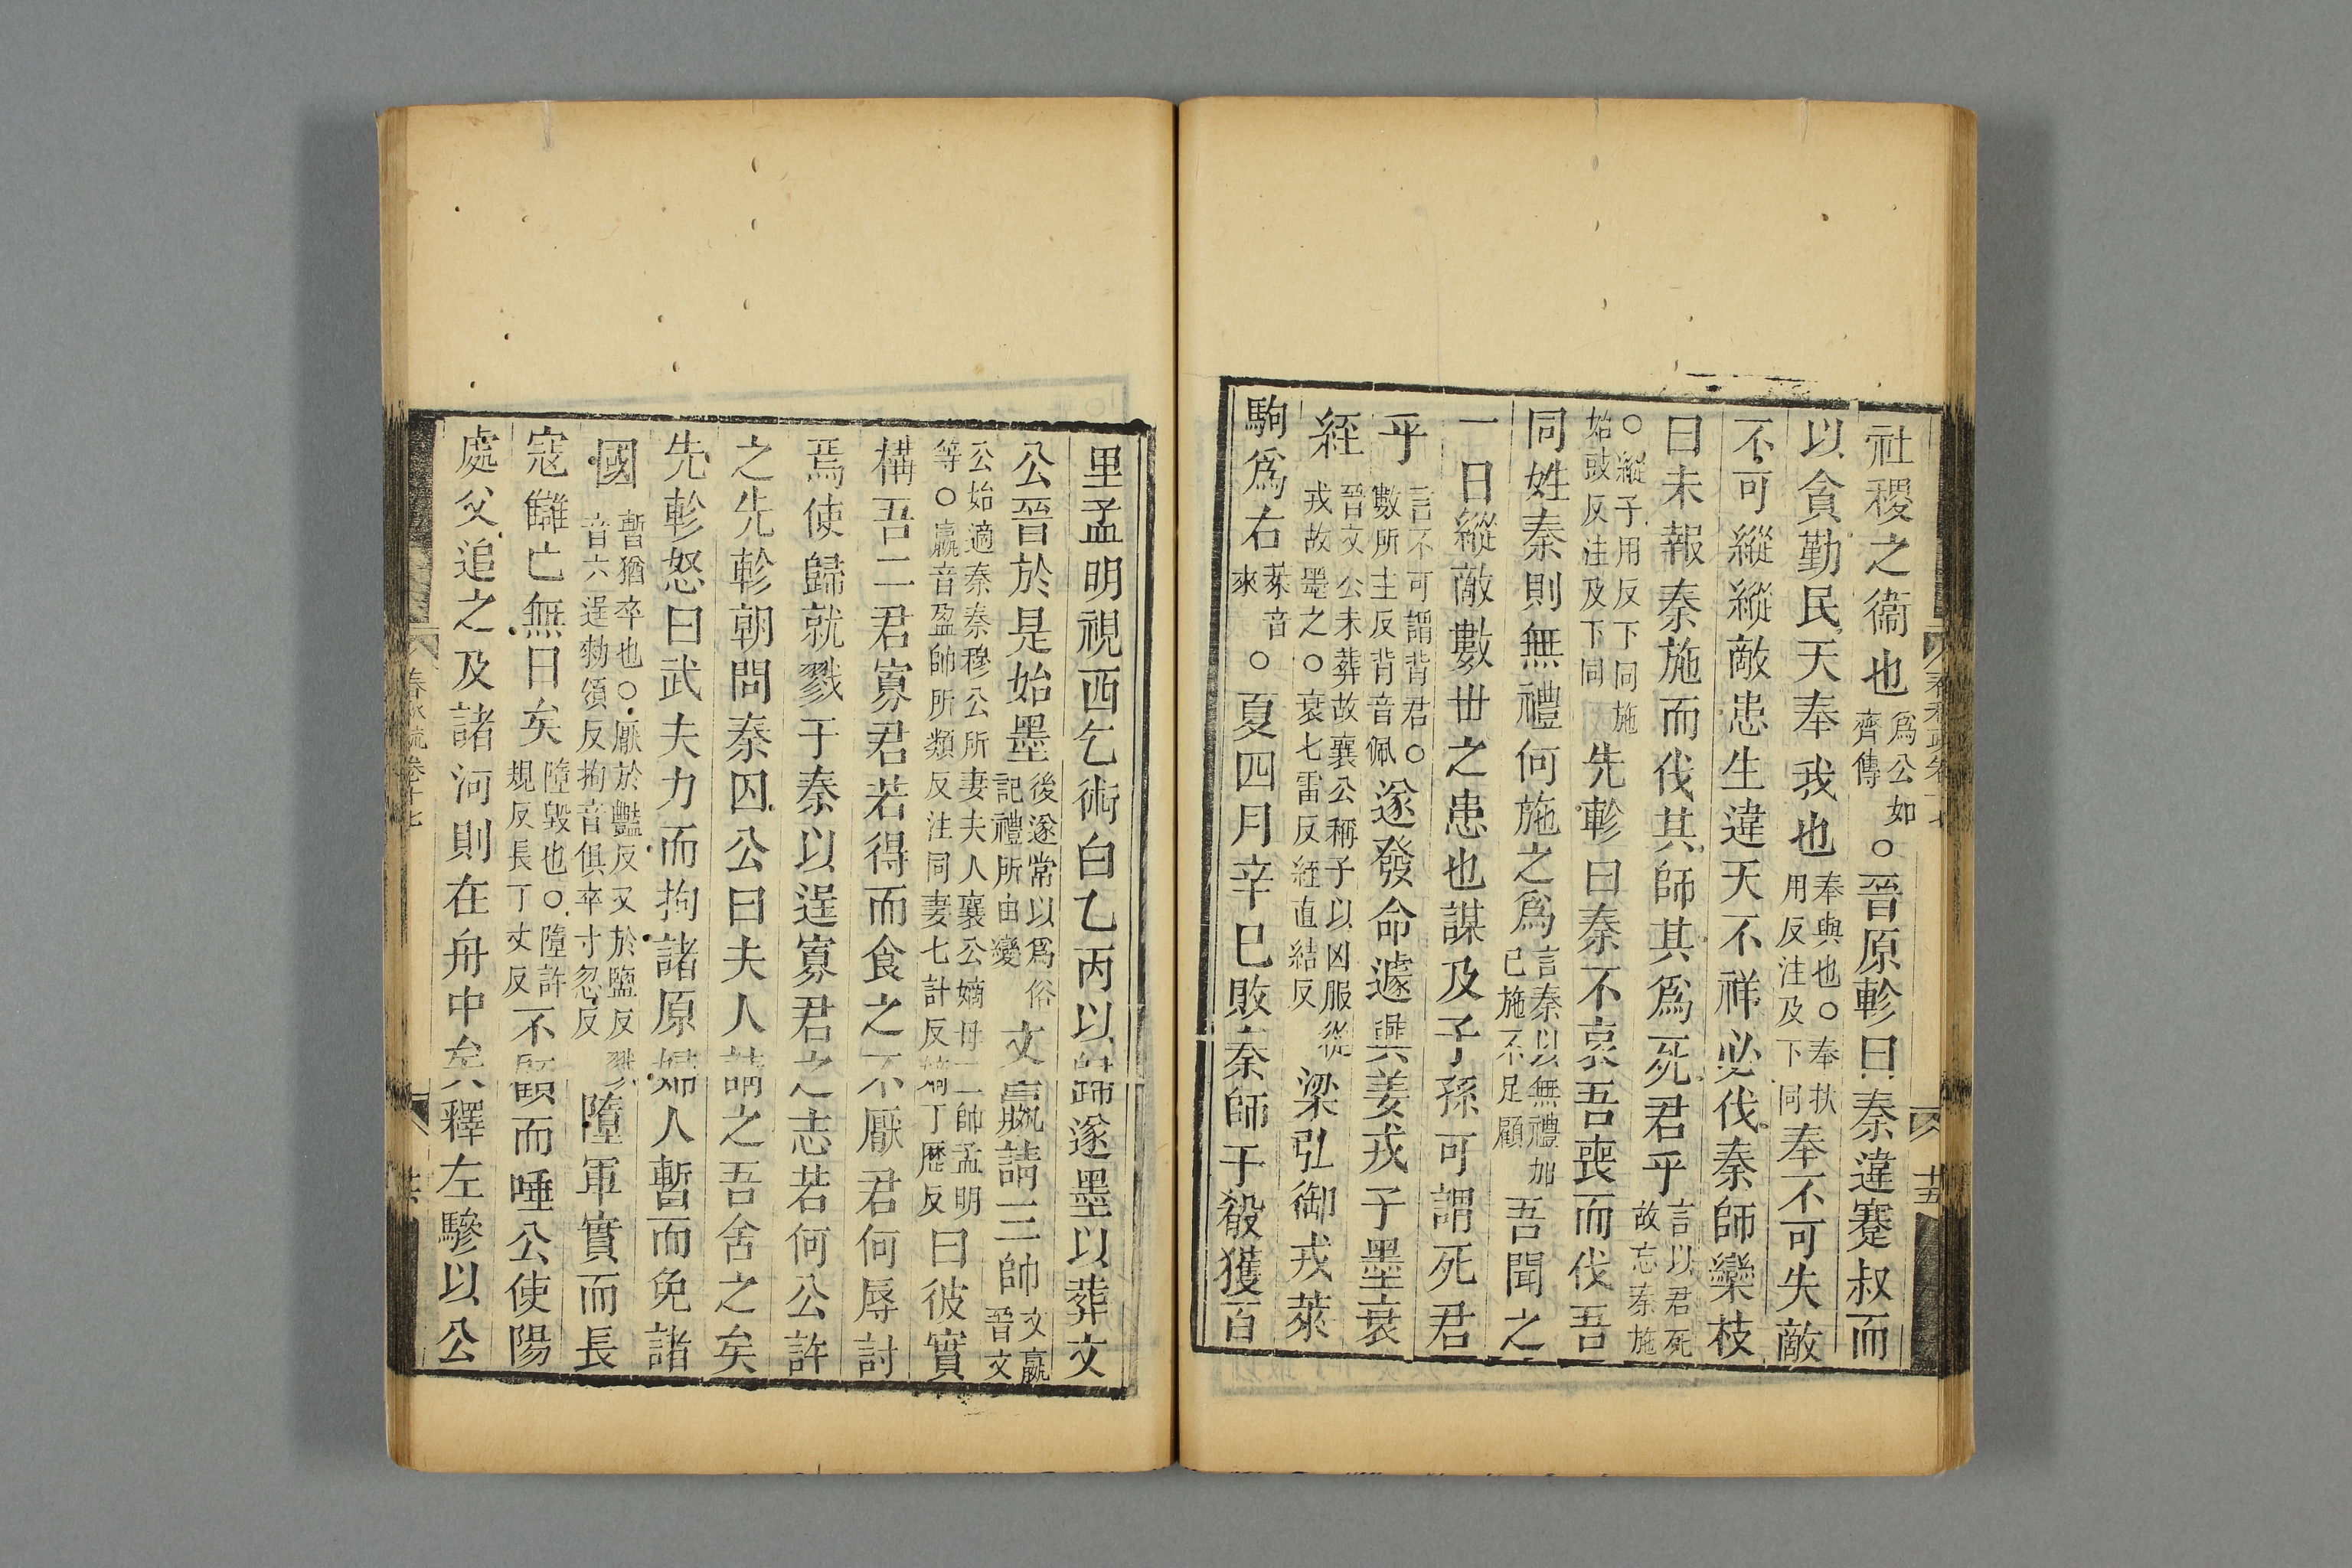 社稷之衞也為公如齊傳○晉原軫曰秦違蹇叔而
以貪勤民天奉我也奉與也○奉扶用反注及下同奉不可失敵
不可縱縱敵患生違天不祥必伐秦師欒枝
曰未報秦施而伐其師其爲死君乎言以君死故忘秦施
○縱子用反下同施始豉反注及下同先軫曰秦不哀吾喪而伐吾
同姓秦則無禮何施之爲言秦以無禮加己施不足顧吾聞之
一日縱敵數世之患也謀及子孫可謂死君
乎言不可謂背君○數所主反背音佩遂發命遽興姜戎子墨衰
絰晉文公未葬故襄公稱子以凶服從戎故墨之○衰七雷反絰直結反梁弘御戎萊
駒爲右萊音來○夏四月辛巳敗秦師于殽獲百
里孟明視西乞術白乙丙以歸遂墨以葬文
公晉於是始墨後遂常以爲俗記禮所由變文嬴請三帥文嬴晉文
公始適秦秦穆公所妻夫人襄公嫡母三帥孟明等○嬴音盈帥所類反注同妻七計反嫡丁歷反曰彼實
構吾二君寡君若得而食之不厭君何辱討
焉使歸就戮于秦以逞寡君之志若何公許
之先軫朝問秦囚公曰夫人請之吾舍之矣
先軫怒曰武夫力而拘諸原婦人暫而免諸
國暫猶卒也○厭於豔反又於鹽反戮音六逞勑領反拘音俱卒寸忽反墮軍實而長
寇讎亡無日矣墮毀也○墮許規反長丁丈反不顧而唾公使陽
處父追之及諸河則在舟中矣釋左驂以公